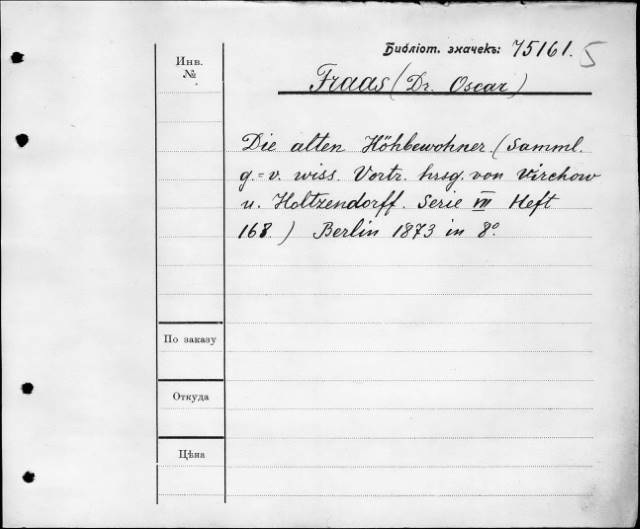 Инв.
№
Библіот. значекъ: 75161. 5
Fraas (Dr. Oscar)
Die alten Höhbewohner (Samml.
g.=v. wiss. Vortr. hrsg. von Virchow
u. Holtzendorff. Serie VIII Heft
168.) Berlin 1873 in 8º.
По заказу
Откуда
Цѣна